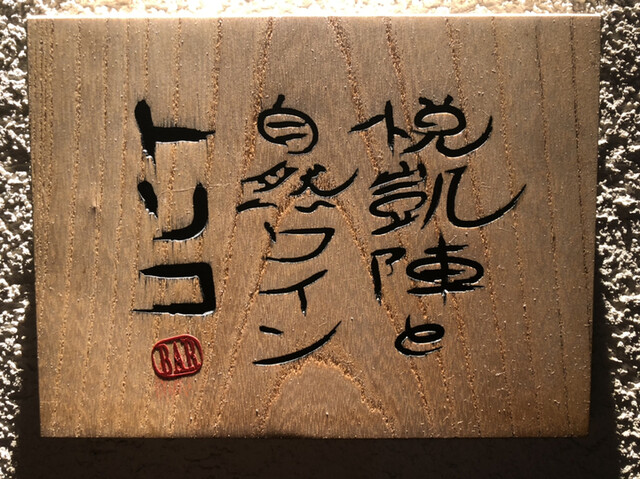 悦凱陣と
自然ワイン
トリコ
BAR